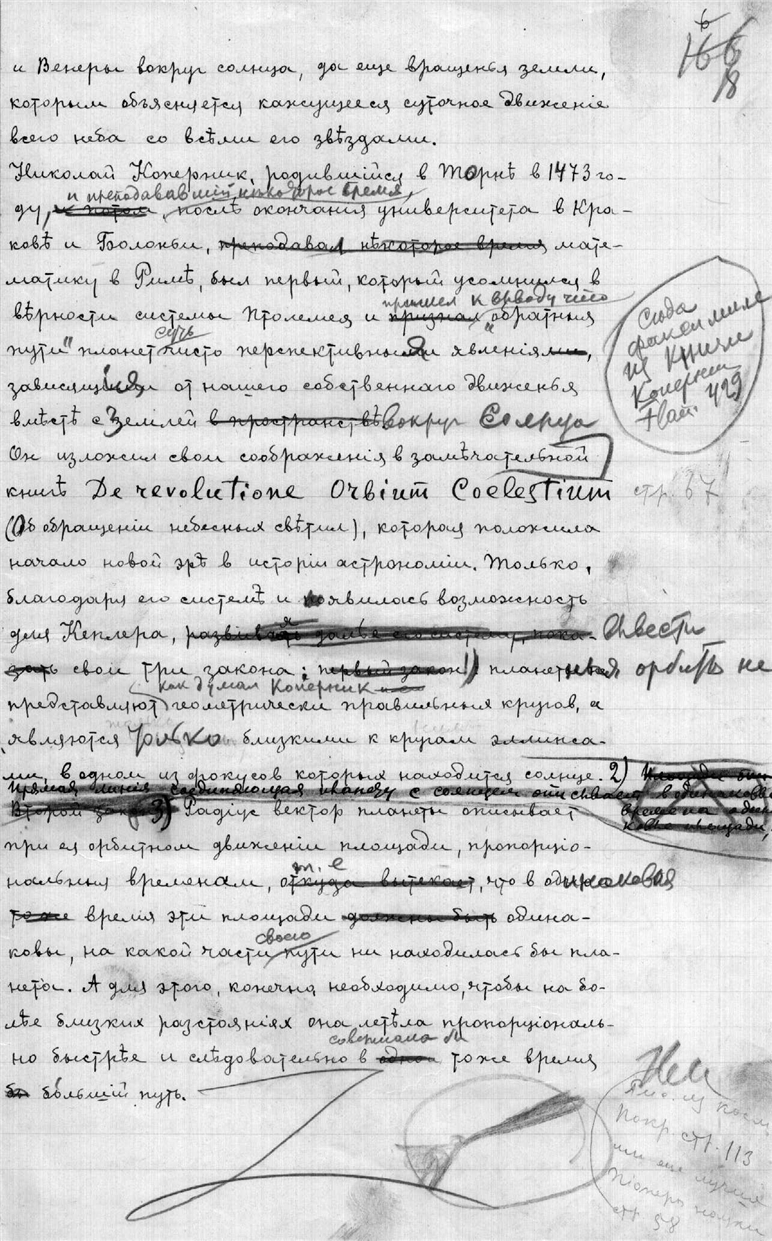 18
и Венеры вокруг солнца, да еще вращенья земли,
которым объясняется кажущееся суточное движеніе
всего неба со всѣми его звѣздами.
Николай Коперник, родившійся в Торнѣ в 1473 го-
и преподававшій нѣкоторое время
ду, и потом, послѣ окончанія университета в Кра-
ковѣ и Болоньи, преподавал нѣкоторое время мате-
матику в Римѣ, был первый, который усомнился в
пришел к выводу что
вѣрности системы Птолемея и признал "обратныя
суть
пути" планет чисто перспективныя явленія,
зависящія от нашего собственнаго движенья
вмѣстѣ с Землей в пространствѣ вокруг Солнца
Он изложил свои соображенія в замѣчательной
книгѣ De revolutione Orbium Coelestium
(Об обращеніи небесных свѣтил), которая положила
начало новой эрѣ в исторіи астрономіи. Только,
благодаря его системѣ и появилась возможность
для Кеплера, развивать далѣе его систему, пока- вывести
зать свои три закона: первый закон 1) планетныя орбиты не
как думал Коперник
представляют геометрически правильных кругов, а
являются только близкими к кругам эллипса-
ми, в одном из фокусов которых находится солнце. 2) Площади
Прямая линія соединяющая планету с солнцем описывает в одинаковое
время одинаковые площади,
Второй закон 3) Радіус вектор планеты описывает
при ея орбитном движеніи площади, пропорціо-
т. е
нальныя временам, откуда вытекает, что в одинаковое
тоже время эти площади должны быть одина-
своего
ковы, на какой части пути ни находилась бы пла-
нета. А для этого, конечно, необходимо, чтобы на бо-
лѣе близких разстояніях она летѣла пропорціональ-
совершала бы
но быстрѣе и слѣдовательно в одно тоже время
бы бо́льшій путь.
Сюда
факсимиле
из книги
Коперник
Flam. 429
стр. 67
стр. 113
или еще лучше
Піонеры науки
стр 58